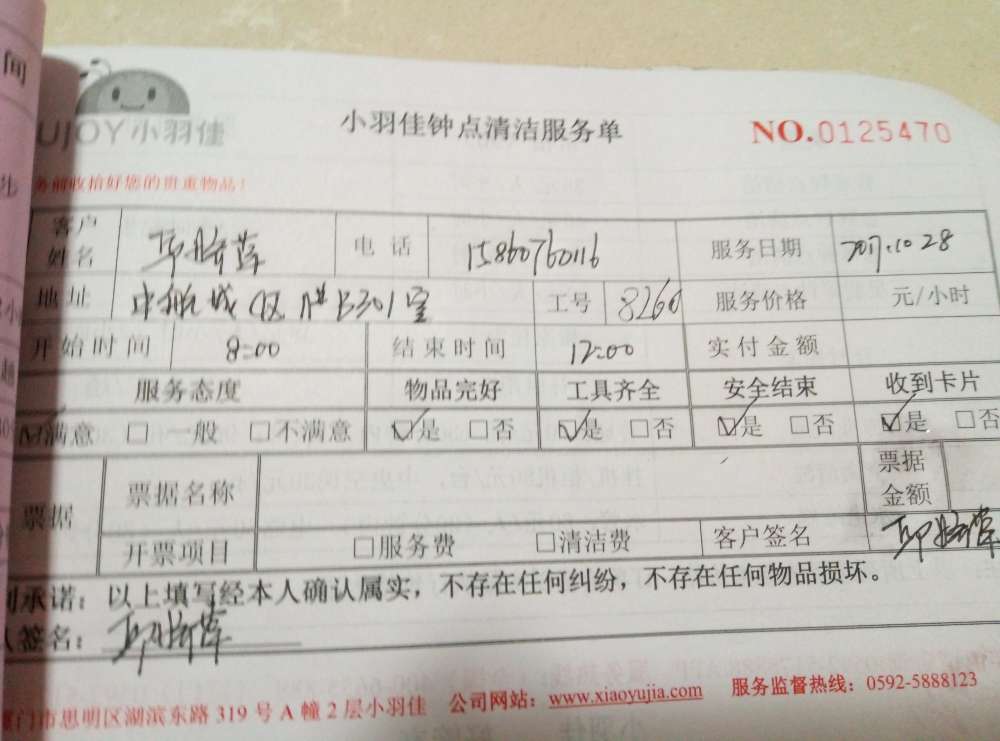 间
UJOY小羽佳
小羽佳钟点清洁服务单
NO.0125470
务前收拾好您的贵重物品！
客户姓名 电话 15860760116 服务日期 2017.10.28
地址 中航城C区1# B301室 工号 8260 服务价格 元/小时
开始时间 8:00 结束时间 12:00 实付金额
服务态度 物品完好 工具齐全 安全结束 收到卡片
☑满意 □一般 □不满意 ☑是 □否 ☑是 □否 ☑是 □否 ☑是 □否
票据 票据名称 票据金额
开票项目 □服务费 □清洁费 客户签名
承诺：以上填写经本人确认属实，不存在任何纠纷，不存在任何物品损坏。
人签名：
厦门市思明区湖滨东路319号A幢2层小羽佳 公司网站：www.xiaoyujia.com 服务监督热线：0592-5888123